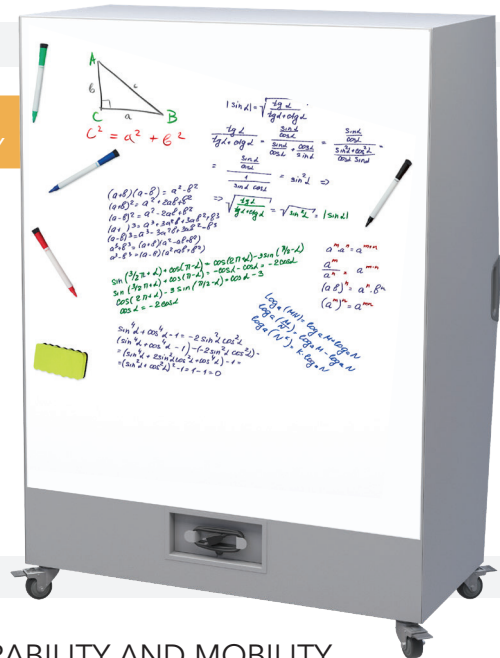 A
б c
C a B
c² = a² + b²
| sin α| = √ tg α / tg α + ctg α
tg α / tg α + ctg α = sin α / cos α / sin α / cos α + cos α / sin α = sin α / cos α / sin² α + cos² α / cos α sin α =
= sin α / cos α / 1 / sin α cos α = sin² α ⇒
⇒ √ tg α / tg α + ctg α = √ sin² α = | sin α|
(a+b)(a-b) = a² - b²
(a+b)² = a² + 2ab + b²
(a-b)² = a² - 2ab + b²
(a+ )³ = a³ + 3a²b + 3ab² + b³
(a-b)³ = a³ - 3a²b + 3ab² - b³
a³+b³ = (a+b)(a²-ab+b²)
a³-b³ = (a-b)(a²+ab+b²)
sin (3/2π + α) + cos(π-α) = cos(2π+α) - 3 sin(π/2 - α)
sin (3/2π + α) + cos(π-α) = -cos α - cos α = -2cos α
cos (2π + α) - 3 sin (π/2 - α) = cos α - 3
cos α = -2cos α
aᵐ · aⁿ = aᵐ⁺ⁿ
aᵐ / aⁿ = aᵐ⁻ⁿ
(ab)ⁿ = aⁿ · bⁿ
(aᵐ)ⁿ = aᵐⁿ
logₐ(MN) = logₐ M + logₐ N
logₐ(M/N) = logₐ M - logₐ N
logₐ(Nᵏ) = k · logₐ N
sin⁴α + cos⁴α - 1 = -2 sin²α cos²α
(sin⁴α + cos⁴α - 1) - (-2 sin²α cos²α) =
= (sin⁴α + 2 sin²α cos²α + cos⁴α) - 1 =
= (sin²α + cos²α)² - 1 = 1 - 1 = 0
AND MOBILITY